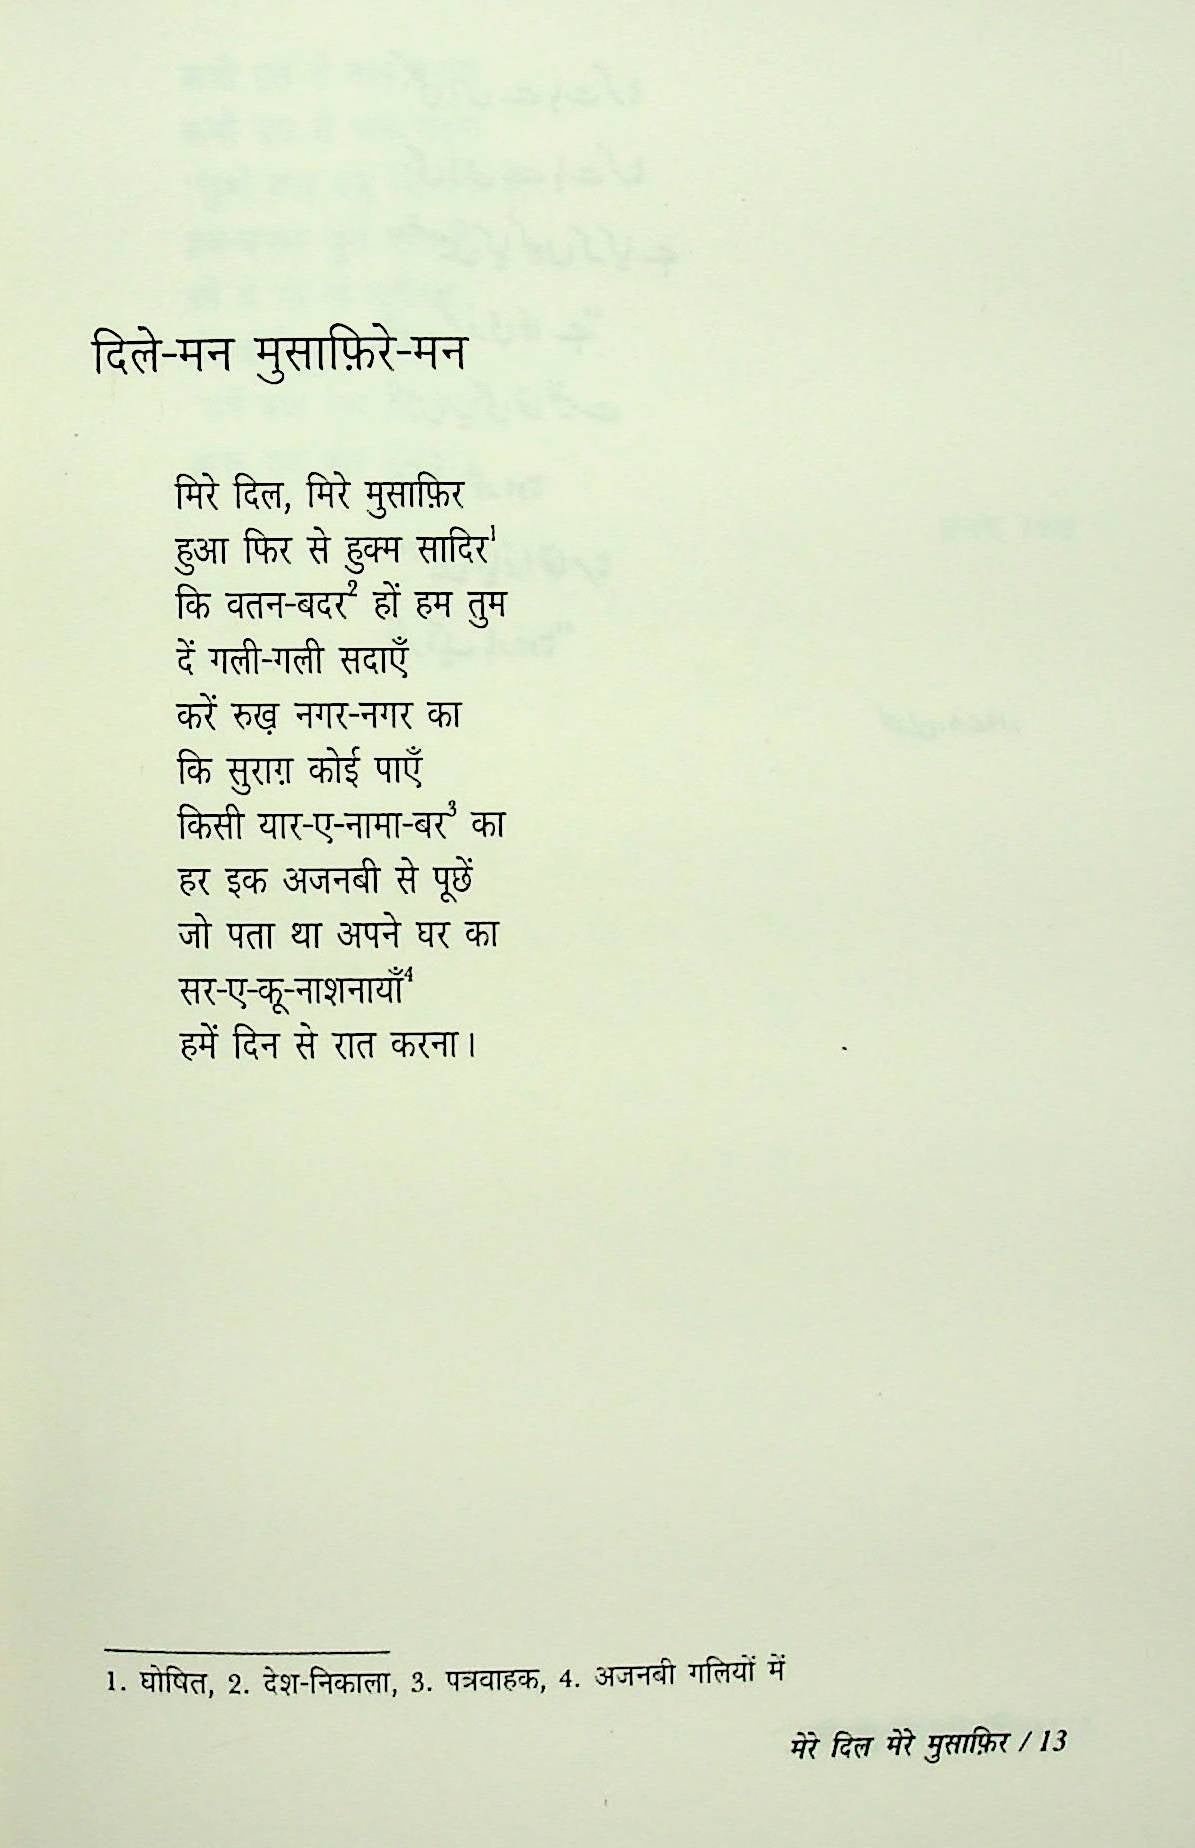 दिले-मन मुसाफ़िरे-मन
मिरे दिल, मिरे मुसाफ़िर
हुआ फिर से हुक्म सादिर¹
कि वतन-बदर² हों हम तुम
दें गली-गली सदाएँ
करें रुख़ नगर-नगर का
कि सुराग़ कोई पाएँ
किसी यार-ए-नामा-बर³ का
हर इक अजनबी से पूछें
जो पता था अपने घर का
सर-ए-कू-नाशनायाँ⁴
हमें दिन से रात करना।
1. घोषित, 2. देश-निकाला, 3. पत्रवाहक, 4. अजनबी गलियों में
मेरे दिल मेरे मुसाफ़िर / 13